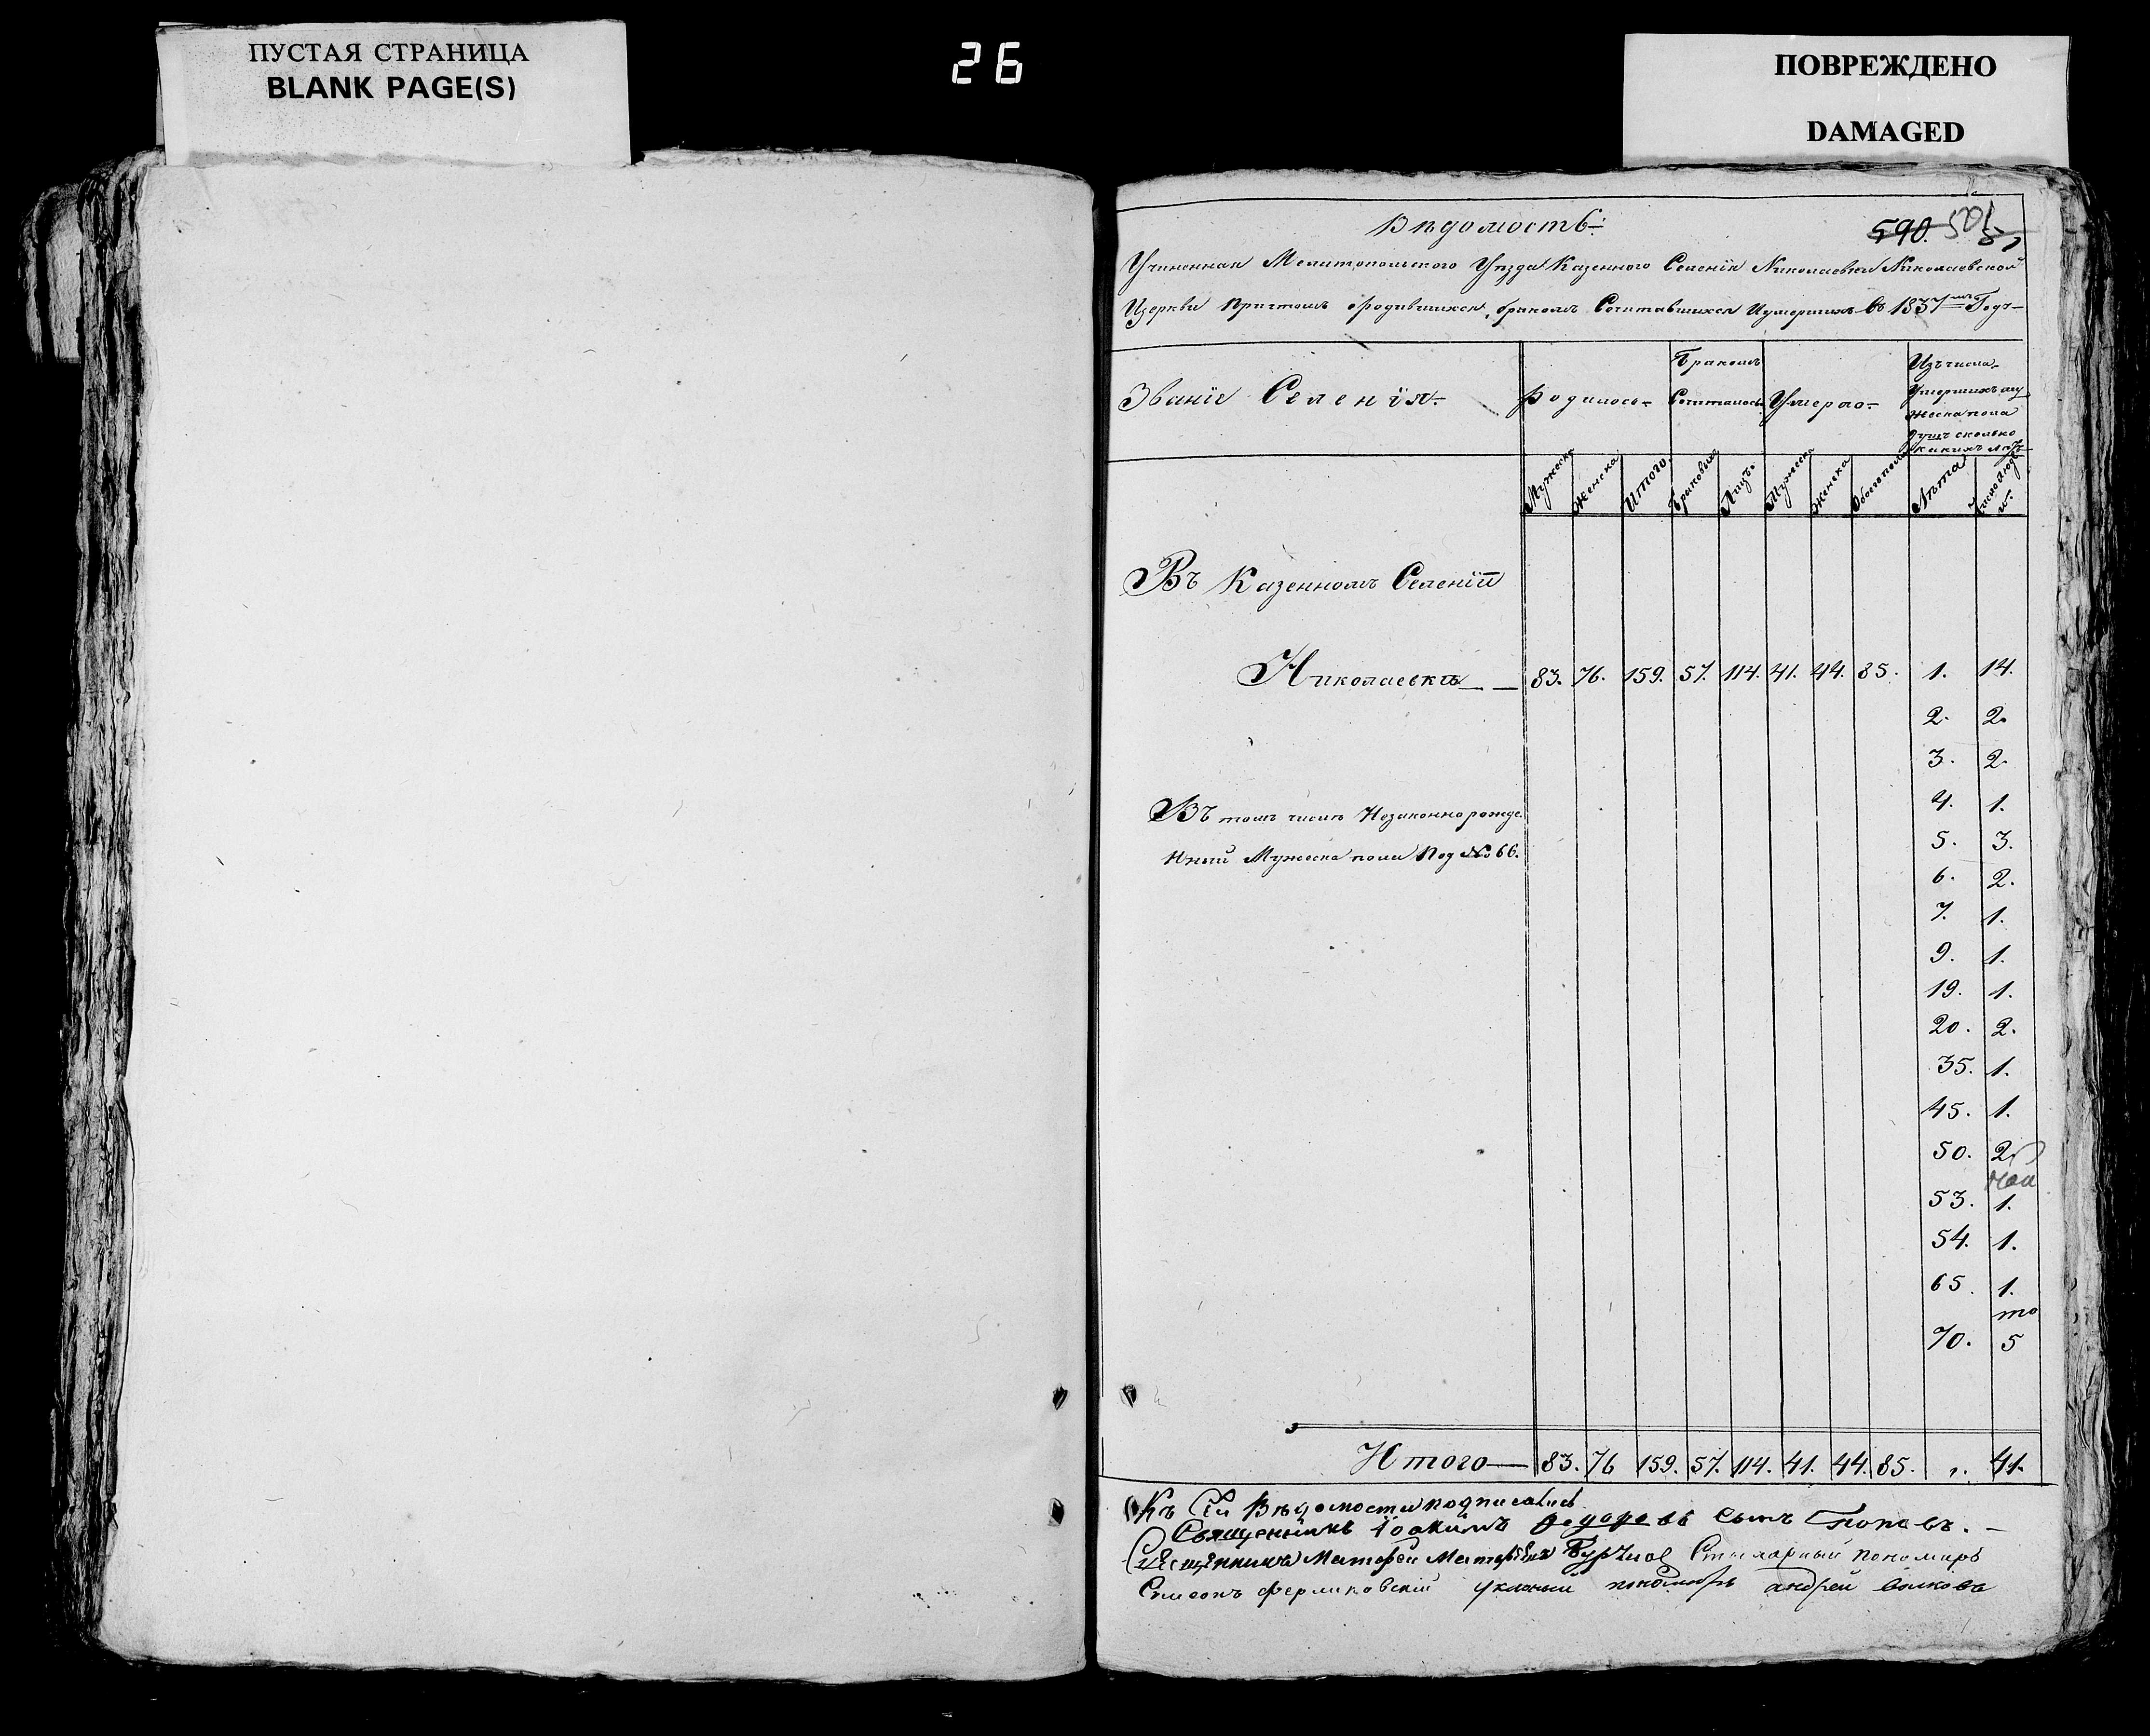 ПУСТАЯ СТРАНИЦА
BLANK PAGE(S)
26
ПОВРЕЖДЕНО
DAMAGED
Вѣдомость
590. 501
Учиненная Мелитопольского Уѣзда Казенного Селенія Николаевки Николаевской
Церкви Причтомъ о родившихся, бракомъ Сочитавшихся И умершихъ въ 1837мъ Годѣ
Званіе Селенія
Родилось
Бракомъ
Сочиталось
Умерло
Изъ числа
Умершихъ му
жеска пола
душъ сколько
какихъ лѣтъ
Мужеска Женска Итого Браковъ Лицъ Мужеска Женска Обоего пола Лѣта Число людей
Въ Казенномъ Селеніи
Николаевки 83. 76. 159. 57. 114. 41. 44. 85. 1. 14.
2. 2.
3. 2.
Въ томъ числѣ Незаконнорожде
4. 1.
нный Мужеска пола Под № 66.
5. 3.
6. 2.
7. 1.
9. 1.
19. 1.
20. 2.
35. 1.
45. 1.
50. 2
53. 1.
54. 1.
65. 1.
70. 5
Итого 83. 76 159. 57. 114. 41. 44. 85. 41.
Къ Сей Вѣдомости подписались
Священникъ Іоакимъ Федоровъ сынъ Поповъ.
Священникъ Матфей Стихарный пономарь
Симеонъ указный пономарь андрей волковъ